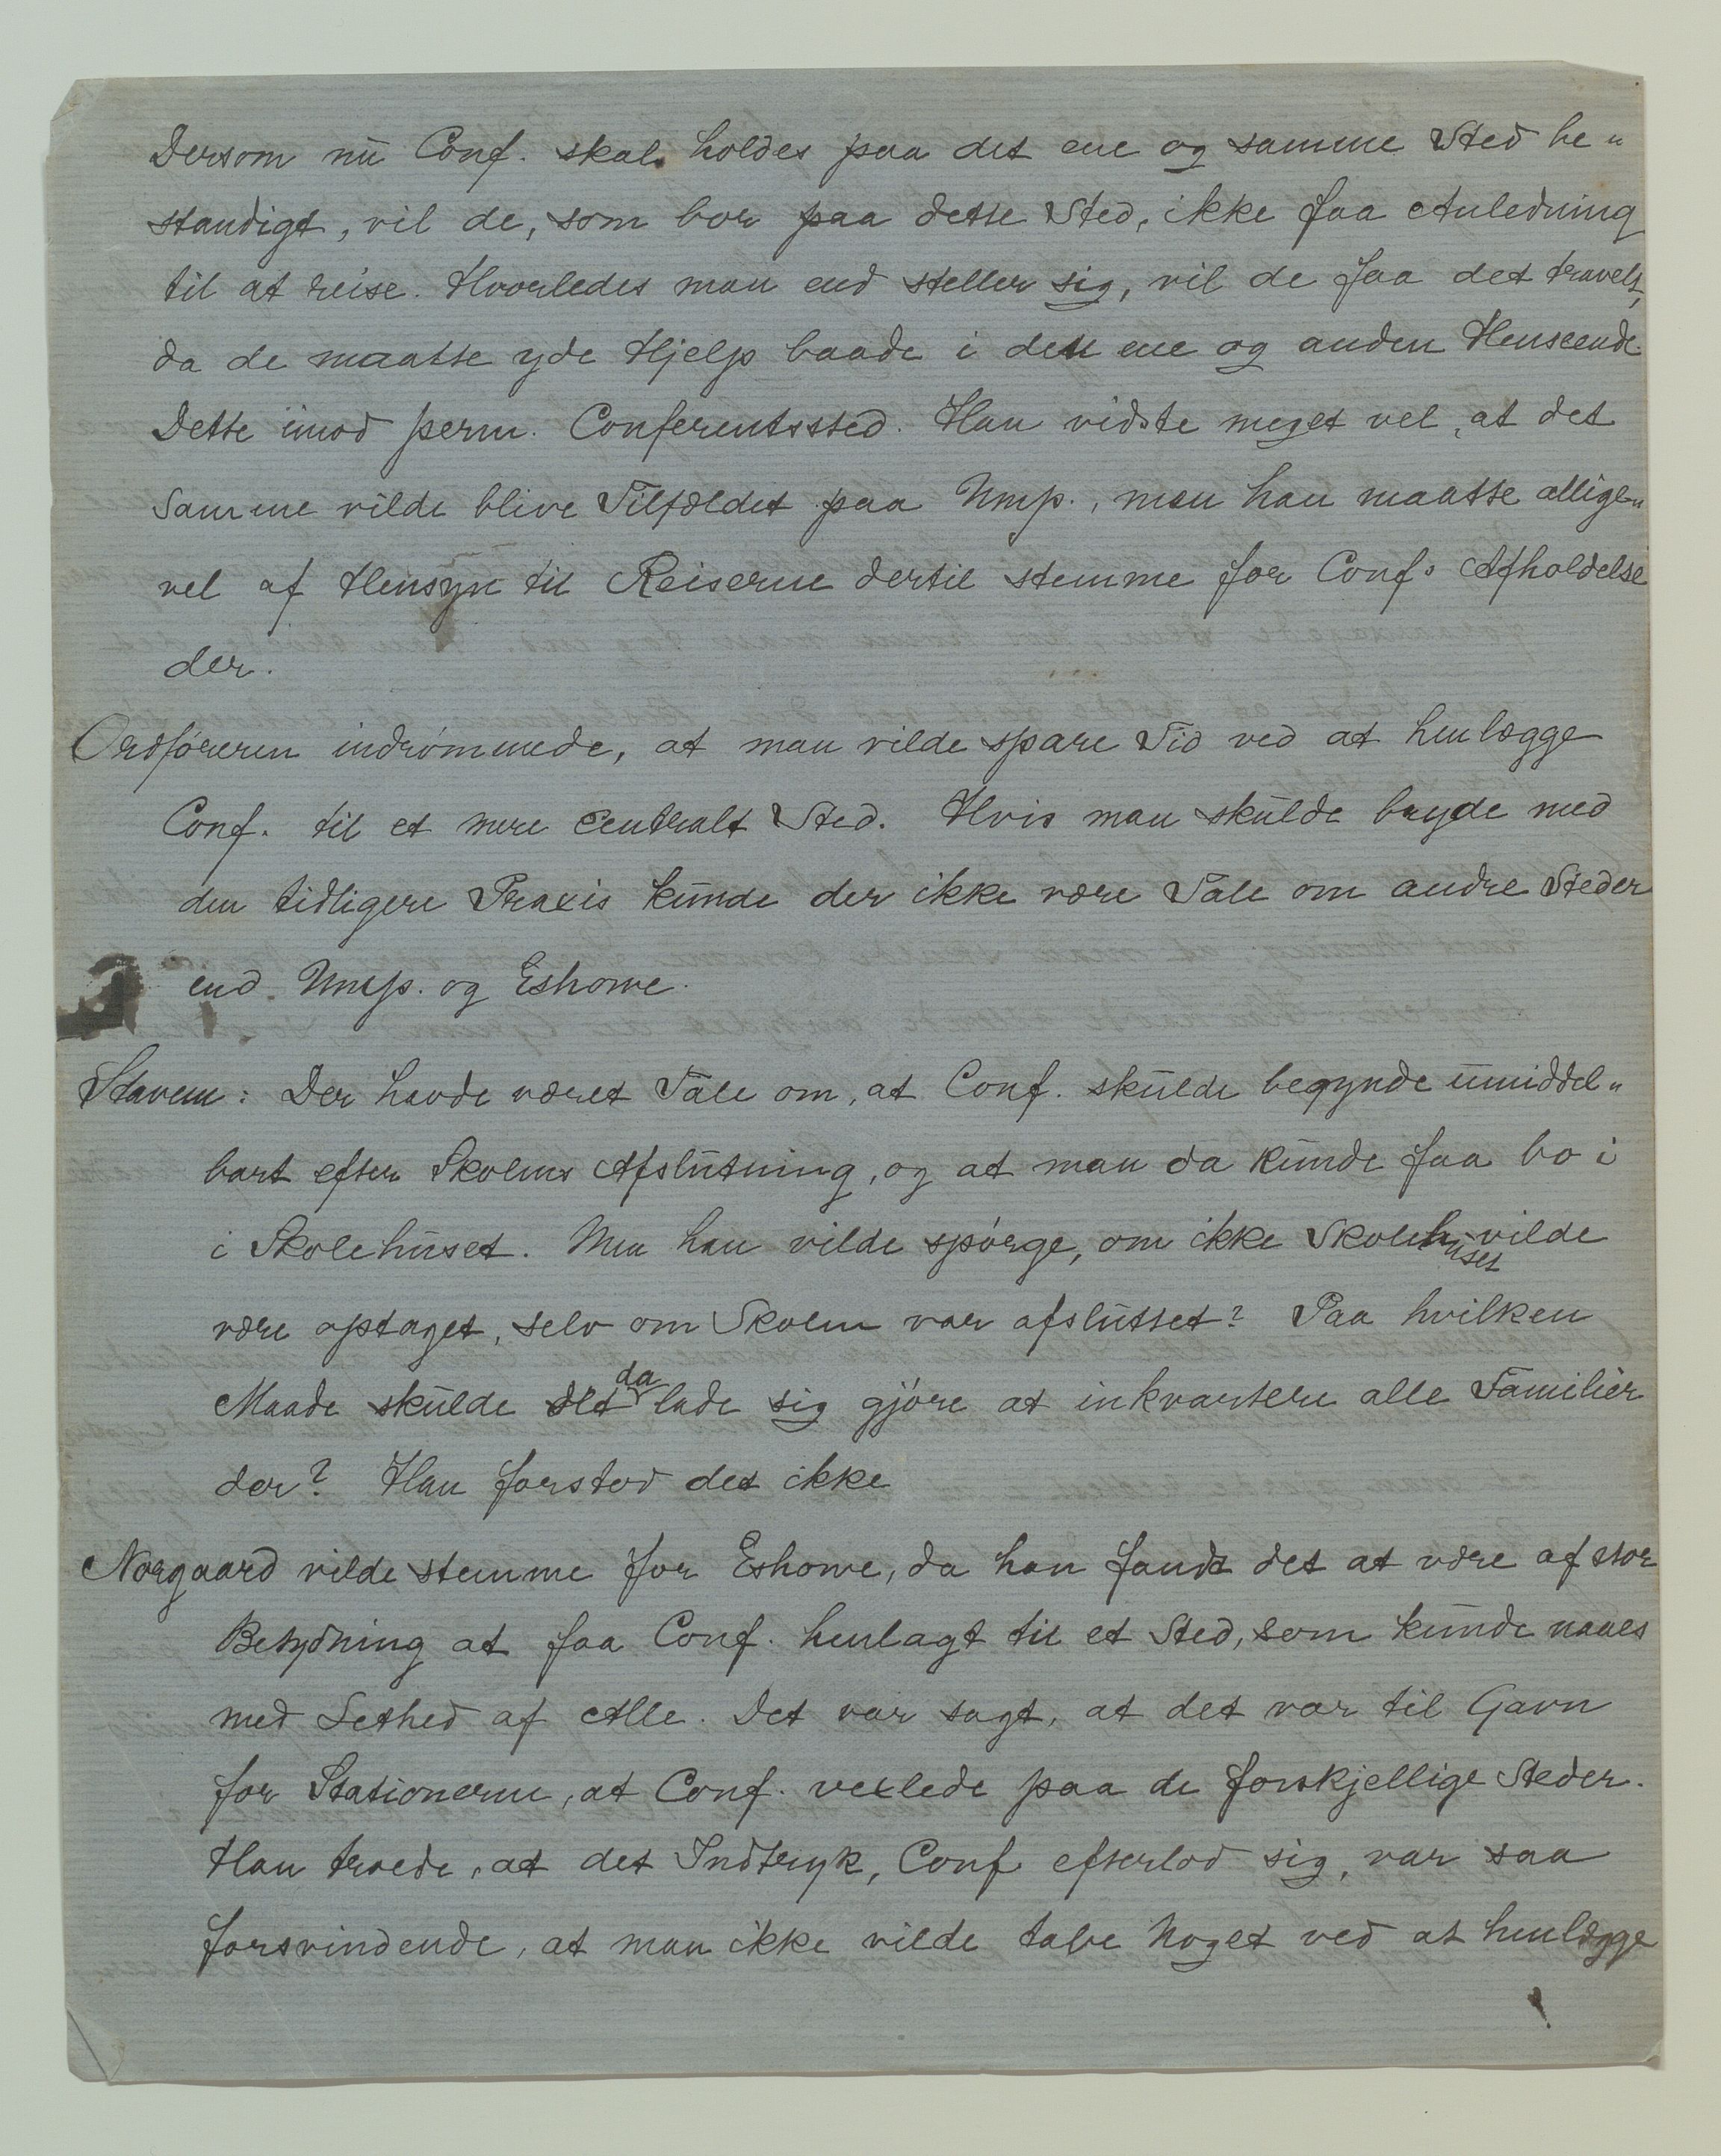 Dersom nu Conf. skal holdes paa det ene og samme Sted be„
standigt, vil de, som bor paa dette Sted, ikke faa Anledning
til at reise. Hvorledes man end steller sig, vil de faa det travelt,
da de maatte yde Hjelp baade i den ene og anden Henseende.
Dette imod perm. Conferentssted. Han vidste meget vel, at det
samme vilde blive Tilfældet paa Ump., men han maatte allige„
vel af Hensyn til Reiserne dertil stemme for Conf.s Afholdelse
der.
Ordføreren indrømmede, at man vilde spare Tid ved at henlægge
Conf. til et mere centralt Sted. Hvis man skulde bryde med
den tidligere Praxis kunde der ikke være Tale om andre Steder
end Ump. og Eshowe.
Stavem: Der havde været Tale om, at Conf. skulde begynde umiddel„
bart efter Skolens Afslutning, og at man da kunde faa bo i
i Skolehuset. Men han vilde spørge, om ikke Skolehuset vilde
være optaget, selv om Skolen var afsluttet? Paa hvilken
Maade skulde det da lade sig gjøre at inkvartere alle Familier
der? Han forstod det ikke
Norgaard vilde stemme for Eshowe, da han fandt det at være af stor
Betydning at faa Conf. henlagt til et Sted, som kunde naaes
med Lethed af Alle. Det var sagt, at det var til Gavn
for Stationerne, at Conf. vexlede paa de forskjellige Steder.
Han troede, at det Indtryk, Conf. efterlod sig, var saa
forsvindende, at man ikke vilde tabe Noget ved at henlægge